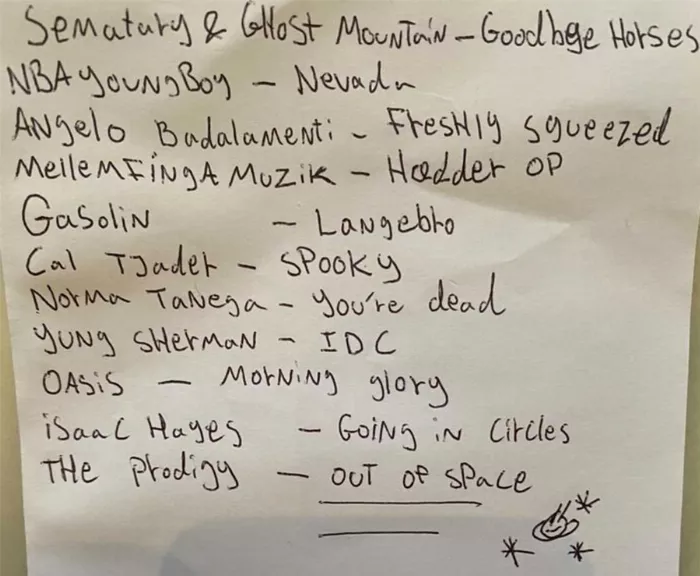 Sematary & GHost Mountain - Goodbye Horses
NBA YoungBoy - Nevada
Angelo Badalamenti - Freshly squeezed
MellemFingaMuzik - Hædder OP
Gasolin - Langebro
Cal Tjader - Spooky
Norma Tanega - You're dead
Yung Sherman - IDC
Oasis - Morning glory
isaac Hayes - Going in Circles
THe Prodigy - OUT OF SPACE